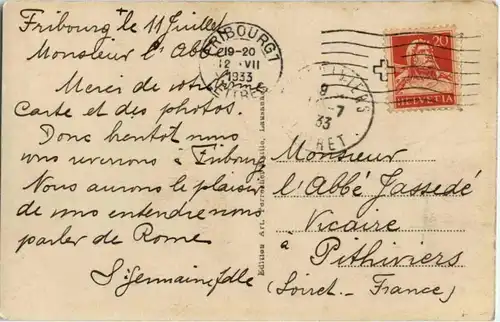 Fribourg le 11 Juillet
Monsieur l'Abbé
Merci de votre
Carte et des photos.
Donc bientôt nous
vous reverrons à Fribourg
Nous aurons le plaisir
de vous entendre nous
parler de Rome
Sr Germaine
FRIBOURG 1
19-20
12 VII
1933
20
HELVETIA
PITHIVIERS
9
-7
33
LOIRET
Edition Art. Perrochet Lausanne
Monsieur
l'Abbé Jassedé
Vicaire
à Pithiviers
(Loiret - France)